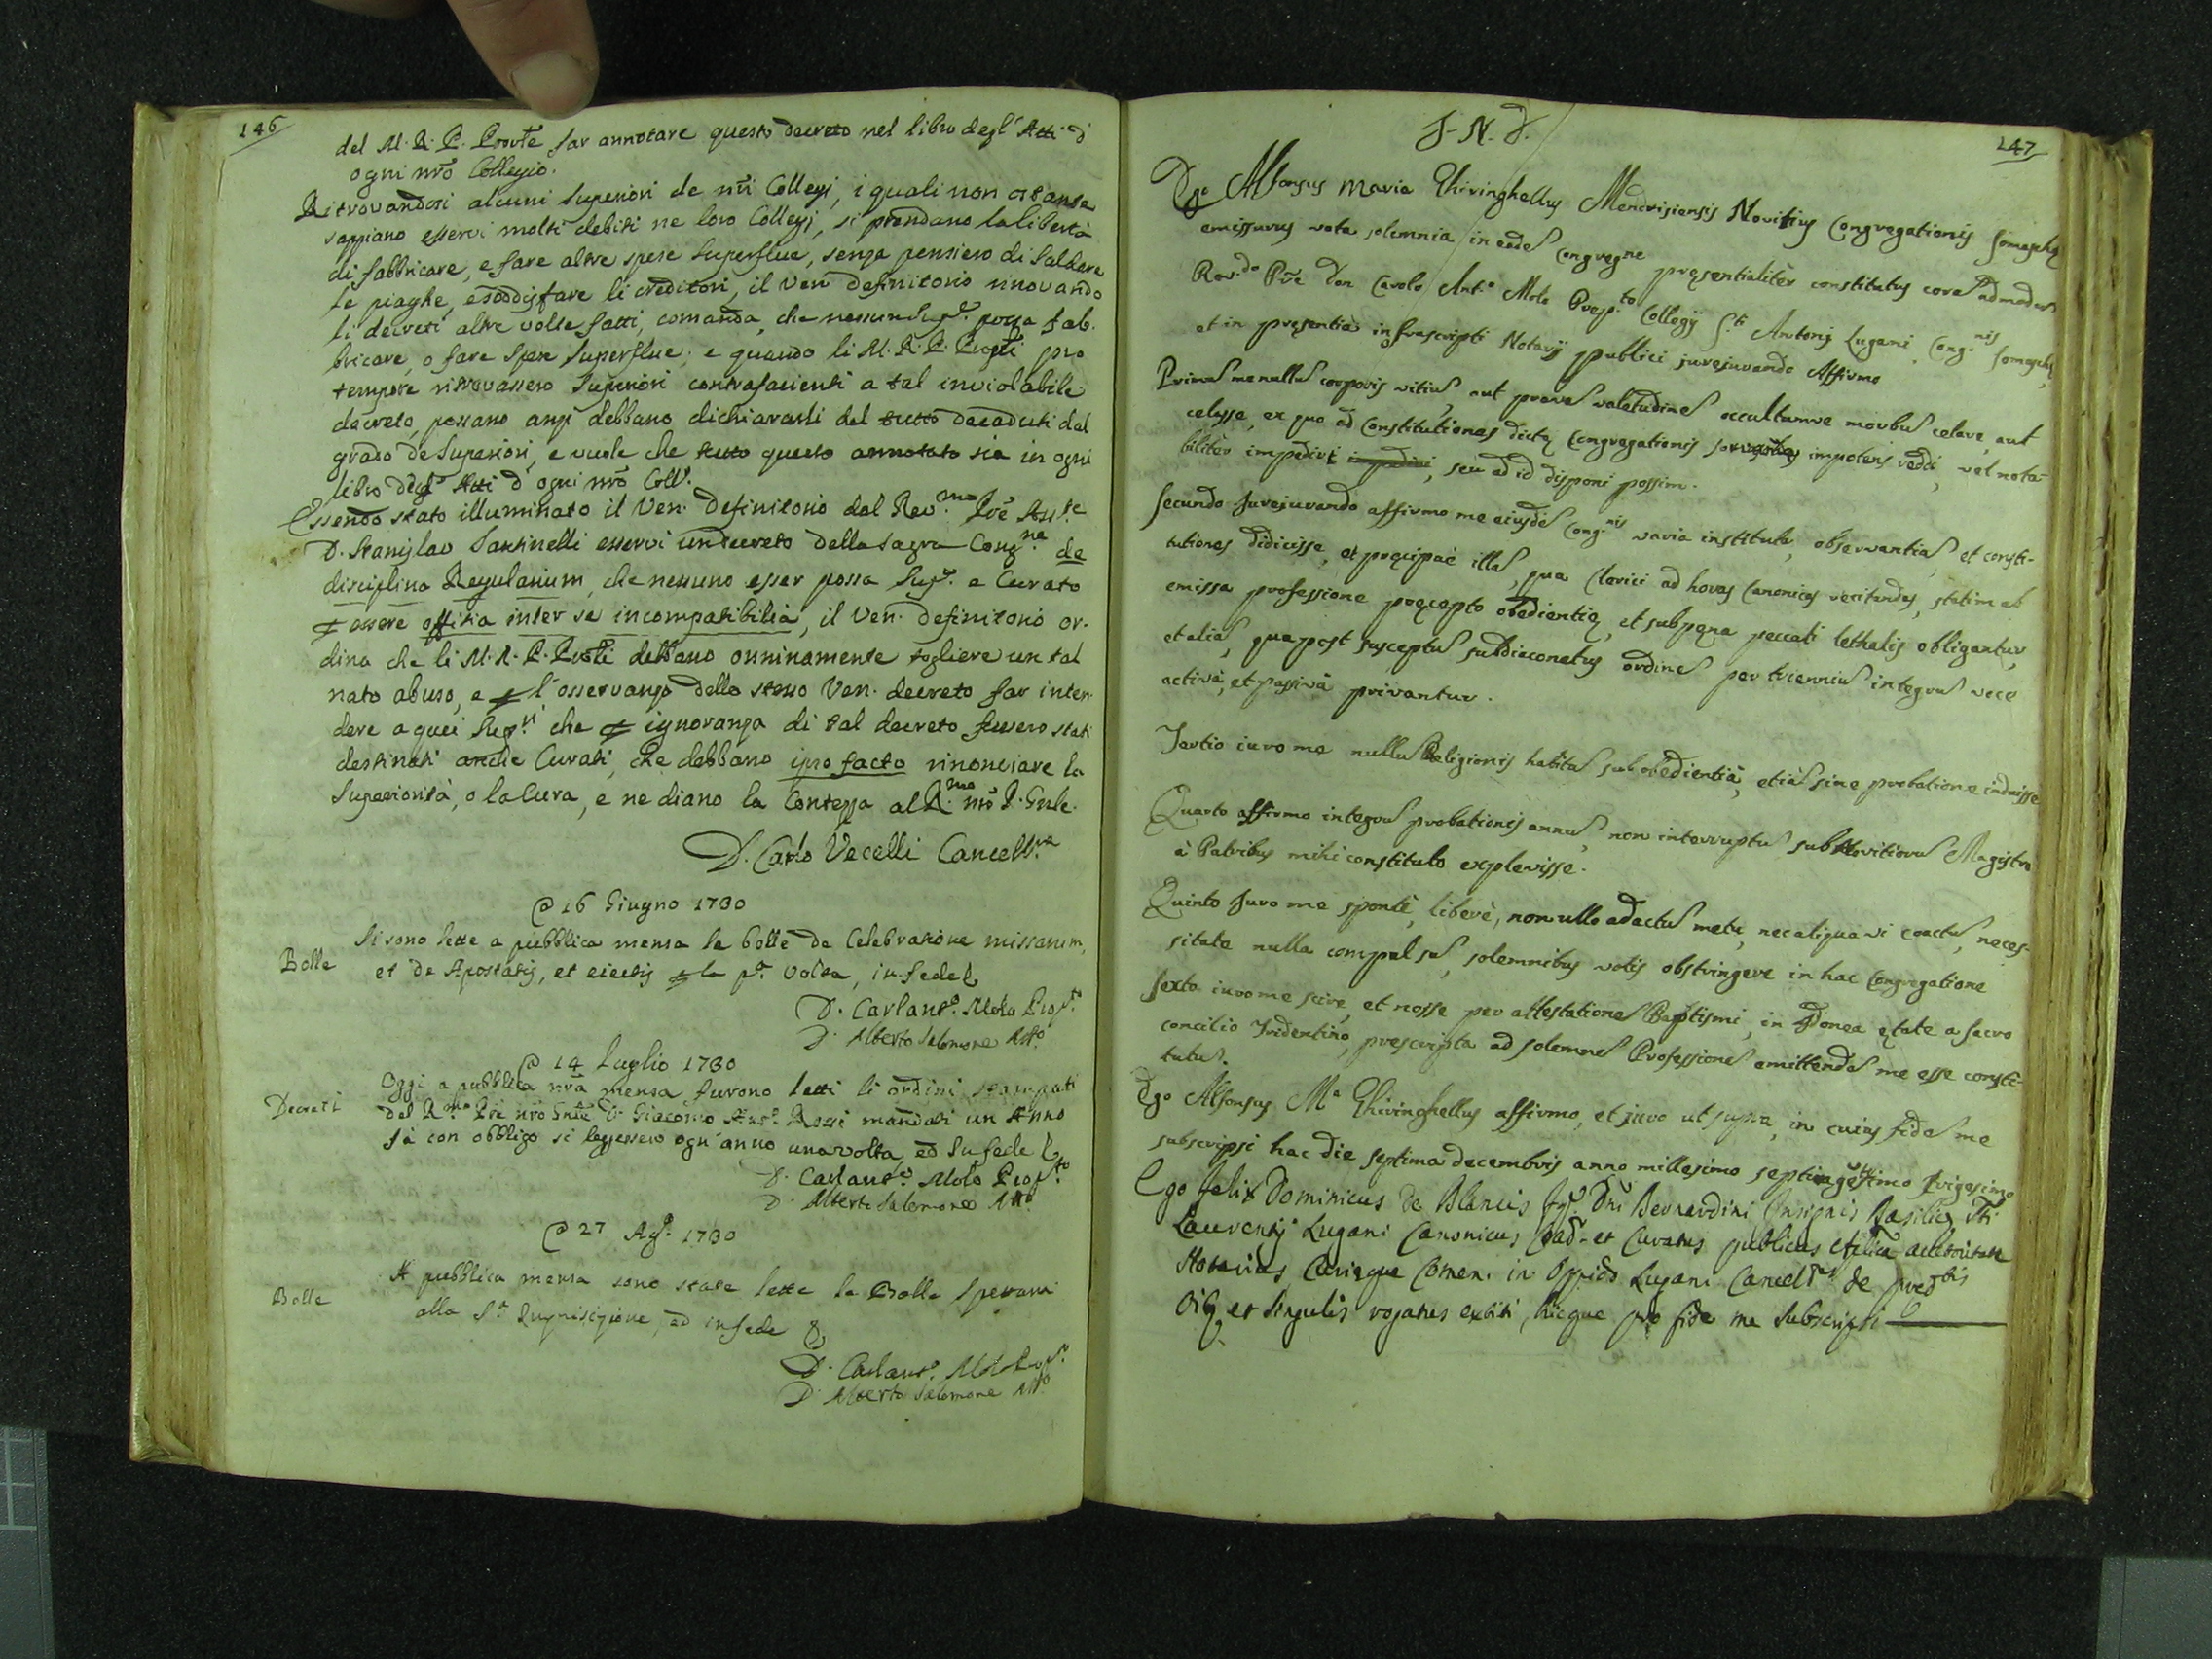 146
del M. R. P. Provle far annotare questo decreto nel libro degl' Atti d'
ogni nrõ Collegio.
Ritrovandosi alcuni Superiori de nrĩ Collegj, i quali non ostante
sappiano esservi molti debiti ne loro Collegj, si prendano la libertà
di fabbricare, e fare altre spese superflue, senza pensiero di saldare
le piaghe, e soddisfare li creditori, il Ven. Definitorio rinovando
li decreti altre volte fatti, comanda, che nessun Supr. possa fab-
bricare, o fare spese superflue; e quando li M. R. P. Provli pro
tempore ritrovassero Superiori contrafacienti a tal inviolabile
decreto, possano anzi debbano dichiararli del tutto decaduti dal
grado de Superiori, e vuole che tutto questo annotato sia in ogni
libro degl' Atti d' ogni nrõ Coll.
Essendo stato illuminato il Ven. Definitorio dal Rev.mo Prẽ Ass.te
D. Stanislao Santinelli esservi un decreto della Sagra Cong.ne de
disciplina Regularium, che nessuno esser possa Supr. e Curato
p essere offitia inter se incompatibilia, il Ven. Definitorio or-
dina che li M. R. P. Provli debbano onninamente togliere un tal
nato abuso, e p l'osservanza dello stesso Ven. decreto far inten-
dere a quei Supri che p ignoranza di tal decreto fussero stati
destinati anche Curati, che debbano ipso facto rinonciare la
Superiorità, o la Cura, e ne diano la Contezza al R.mo nrõ P. Gnle.
D. Carlo Vecelli Cancell.re
@ 16 Giugno 1730
Bolle
Si sono lette a pubblica mensa le bolle de Celebratione missarum,
et de Apostatis, et eiectis p la pa. volta, in fede
D. Carlant.o Molo Prop.to
D. Alberto Salomone Att.o
@ 14 Luglio 1730
Decreti
Oggi a pubblica nrã mensa furono letti li ordini stampati
del R.mo Prẽ nrõ Gnle D. Giacomo Ant.o Rossi mandati un Anno
fà con obbligo si leggessero ogn' anno una volta, ed In fede
D. Carlant.o Molo Prop.to
D. Alberto Salomone Att.o
@ 27 Ag.o 1730
Bolle
A pubblica mensa sono state lette le Bolle Spettanti
alla S.a Inquisizione, ed in fede
D. Carlant.o Molo Prop.to
D. Alberto Salomone Att.o
147
J. N. D.
Ego Alfonsus Maria Ghiringhellus Mendrisiensis Novitius Congregationis Somaschę
emissurus vota solemnia in eadẽ Congregne pręsentialitèr constitutus corã admodũ
Rev.do Prẽ Don Carolo Ant.o Molo Prep.to Collegij S.ti Antonij Lugani Cong.nis Somaschę,
et in pręsentia infrascripti Notarij publici jurejurando Affirmo
Primũ me nullũ corporis vitiũ, aut pravã valetudinẽ occultumve morbũ celare, aut
celasse, ex quo ad Constitutiones dictę Congregationis servandas impotens reddi, vel notà-
bilitèr impediri impediri, seu ad id disponi possim.
Secundo Jurejurando affirmo me eiusdẽ Cong.nis varia instituta, observantias, et consti-
tutiones didicisse, et pręcipuè illã, qua Clerici ad horas Canonicas recitandas, statim ab
emissa professione pręcepto obedientię, et sub pęna peccati lethalis obligantur,
et aliã, qua post susceptũ subdiaconatus ordinẽ per trienniũ integrũ voce
activà, et passivà privantur.
Tertio iuro me nullũ Religionis habitũ sub obedientia, etiã sine probatione induisse
Quarto affirmo integrũ probationis annũ, non interruptũ sub Novitiorũ Magistro
à Patribus mihi constituto explevisse.
Quinto Juro me spontè, liberè, non ullo adactũ metu, nec aliqua vi coactũ, neces-
sitate nulla compulsũ, solemnibus votis obstringere in hac Congregatione
Sexto iuro me scire, et nosse per attestationẽ Baptismi, in Idonea ętate a Sacro
Concilio Tridentino, prescripta ad solemnẽ Professionẽ emittendã me esse consti-
tutũ.
Ego Alfonsus M.a Ghiringhellus affirmo, et juro ut supra, in cuius fidẽ me
subscripsi hac die septima decembris anno millesimo septingentesimo trigesimo
Ego Felix Dominicus de Blancis fq. Dni Bernardini Insignis Basilicę Sti
Laurentij Lugani Canonicus Coad. et Curatus publicus Aplica auctoritate
Notarius, Curięque Comen. in Oppido Lugani Cancell.s de pred.tis
Oib9 et singulis rogatus extiti, hicque pro fide me subscripsi